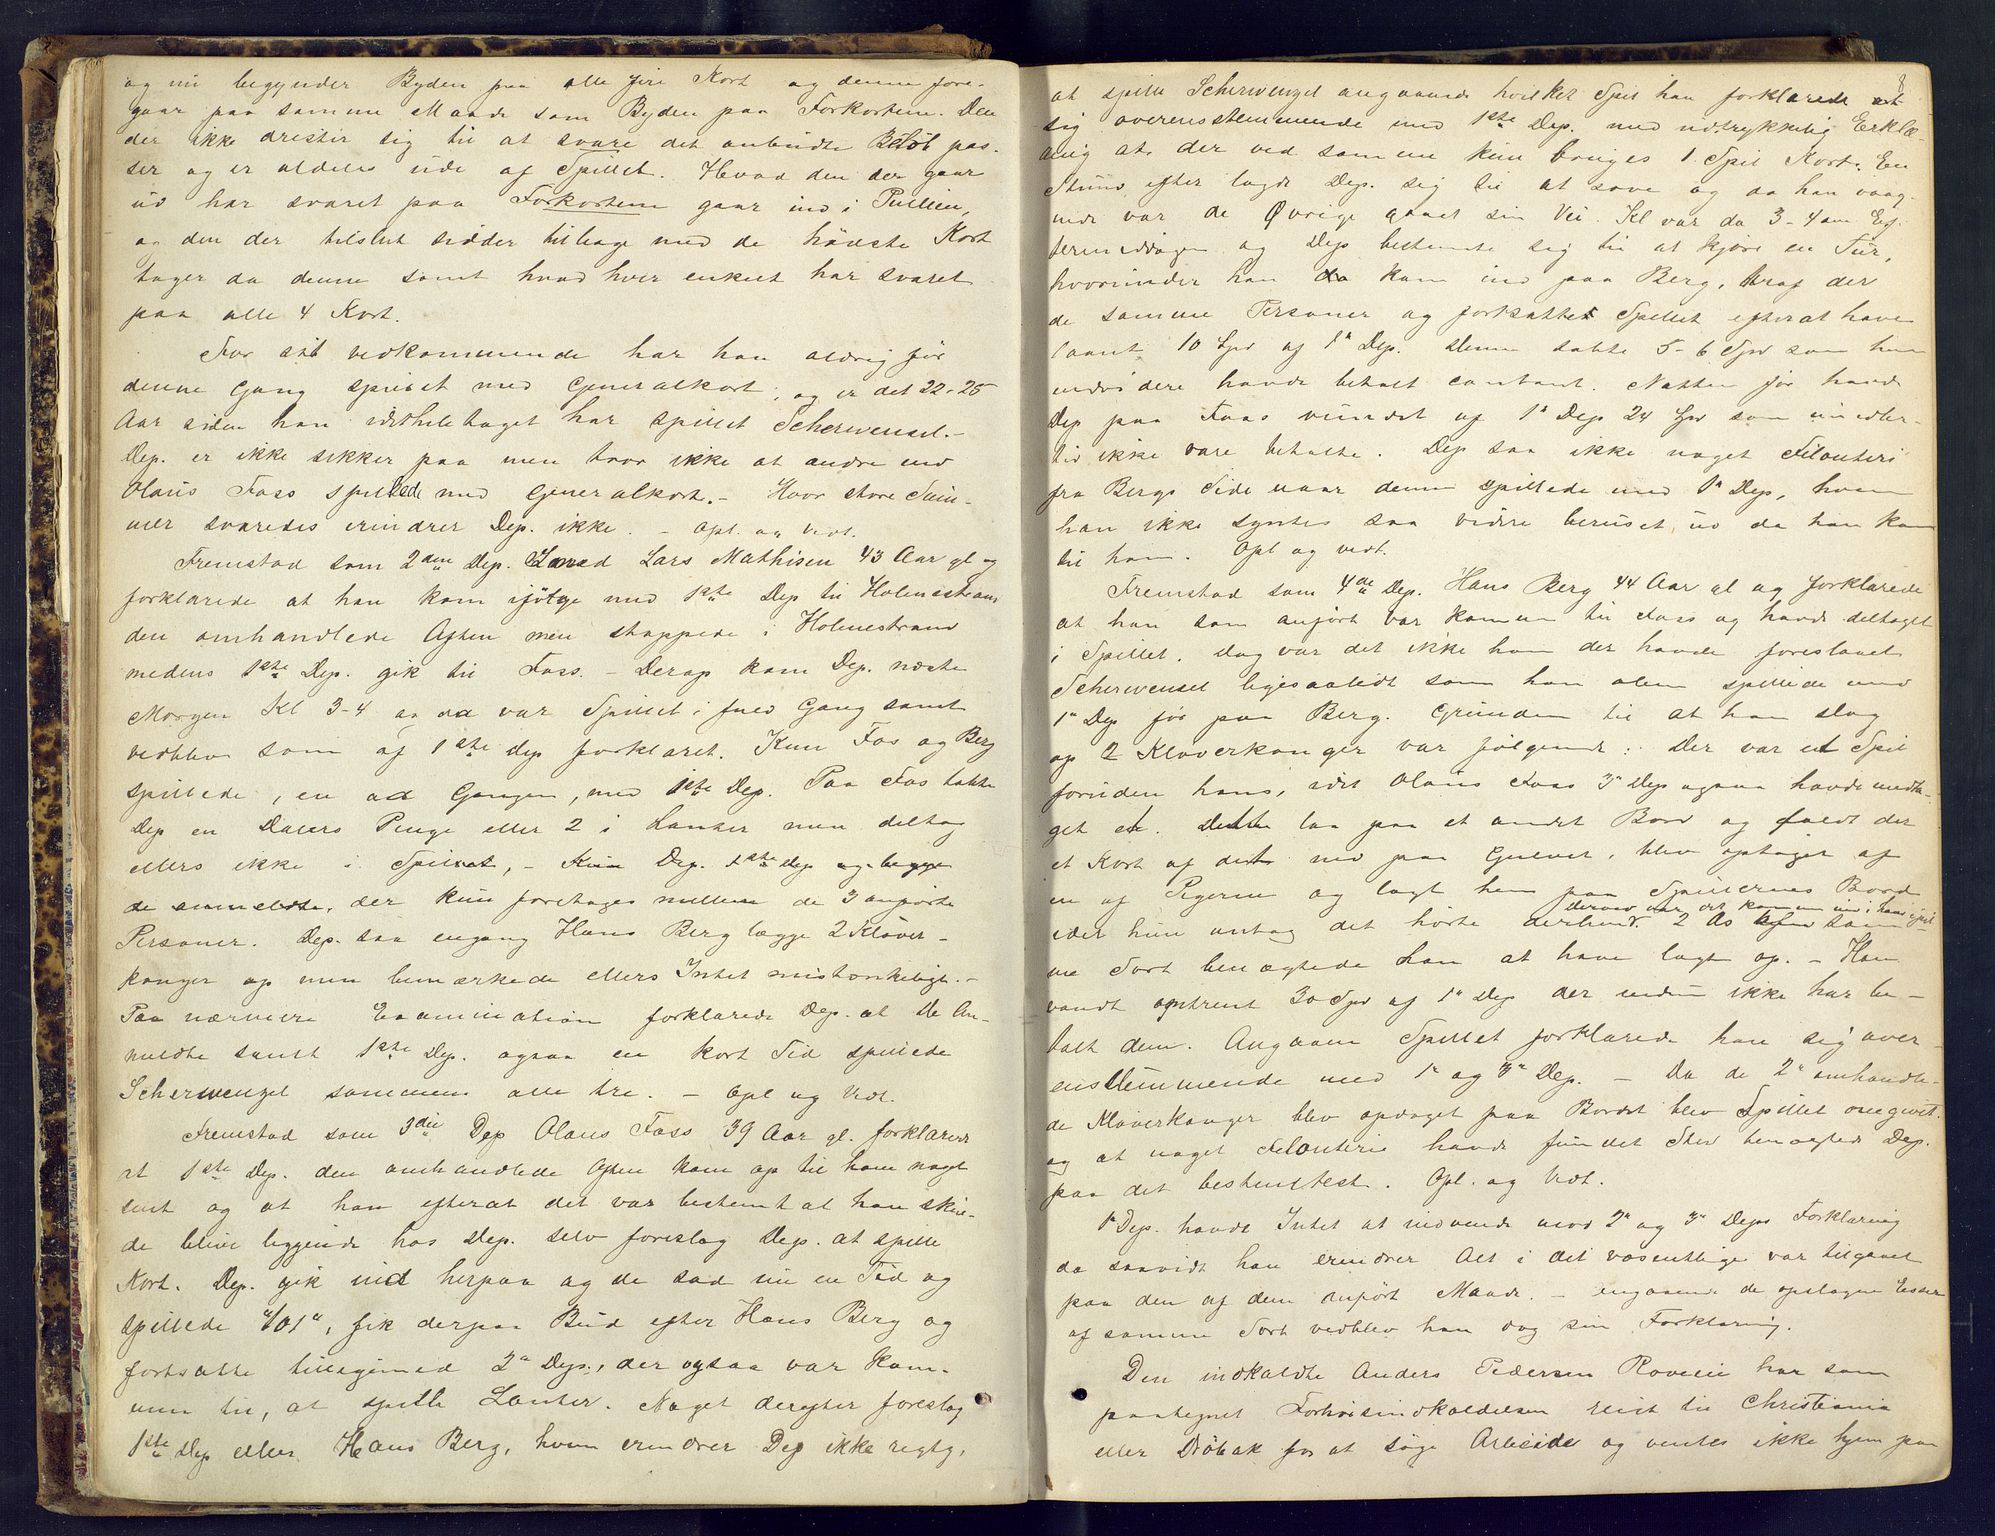 og nu begynder Byden paa alle fire Kort og denne fore-
gaar paa samme Maade som Byden paa Forkortene. Den
der ikke drister sig til at svare det anbudte Beløb pas-
ser og er aldeles ude af Spillet. Hvad den der gaar
ud har svaret paa Forkortene gaar ind i Pullien,
og den der tilslut sidder tilbage med de höieste Kort
tager da denne samt hvad hver enkelt har svaret
paa alle 4 Kort.
For sit vedkommende har han aldrig før
denne Gang spillet med Generalkort, og er det 22-25
Aar siden han idethele taget har spillet Scherwensel.-
Dep. er ikke sikker paa men tror ikke at andre end
Olaus Fass spillede med Generalkort.- Hvor store Sum-
mer svaredes erindrer Dep. ikke. - Opl. og Vedt.
Fremstod som 2den Dep. Lars Mathisen 43 Aar gl og
forklarede at han kom ifølge med 1ste Dep til Holmestrand
den omhandlede Aften men stoppede i Holmestrand
medens 1ste Dep. gik til Fass. - Derop kom Dep. næste
Morgen Kl 3-4 og da var Spillet i fuld Gang samt
vedblev som af 1ste Dep forklaret. Kun Fas og Berg
spillede, en ad Gangen, med 1ste Dep. Paa Fas tabte
Dep en Dalers Penge eller 2 i Lanter men deltog
ellers ikke i Spillet, - Kun Dep. 1ste Dep og begge
de anmeldte, der kun foretoges mellem de 3 anførte
Personer. Dep. saa engang Hans Berg lægge 2 Kløver-
konger op men bemærkede ellers Intet mistænkeligt.-
Paa nærmere Examination forklarede Dep. at De An-
meldte samt 1ste Dep. ogsaa en kort Tid spillede
Scherwenzel sammen alle tre. - Opl og Vedt.
Fremstod som 3die Dep Olaus Fass 39 Aar gl. forklarede
at 1ste Dep. den omhandlede Aften kom op til ham noget
sent og at han efterat det var bestemt at han skul-
de blive liggende hos Dep. selv foreslog Dep. at spille
Kort. Dep. gik ind herpaa og de sad nu en Tid og
spillede "101", fik derpaa Bud efter Hans Berg og
fortsatte tilligemed 2n Dep., der ogsaa var kom-
men til, at spille Lanter. Noget derefter foreslog
1ste Dep eller Hans Berg, hvem erindrer Dep ikke rigtig,
8
at spille Scherwenzel angaaende hvilket Spil han forklarede
sig overensstemmende med 1ste Dep. med udtrykkelig Erklæ-
ring at der ved samme kun bruges 1 Spil Kort. En
Stund efter lagde Dep. sig til at sove og da han vaag-
nede var de Øvrige gaaet sin Vei. Kl var da 3-4 om Ef-
termiddagen og Dep bestemte sig til at kjøre en Tur,
hvorunder han da kom ind paa Berg, traf der
de samme Personer og fortsatte Spillet efterat have
laant 10 Spd af 1n Dep. Denne tabte 5-6 Spd som han
endvidere havde betalt contant. Natten før havde
Dep paa Faas vundet af 1n Dep 24 Spd som imidler-
tid ikke vare betalte. Dep saa ikke noget Filouteri
fra Bergs Side naar denne spillede med 1n Dep, hvem
han ikke syntes saa videre beruset ud da han kom
til ham. Opl og vedt.
Fremstod som 4de Dep. Hans Berg 44 Aar gl og forklarede
at han som anført var kommen til Fass og havde deltaget
i Spillet. Dog var det ikke ham der havde foreslaaet
Scherwensel ligesaalidt som han alene spillede med
1n Dep før paa Berg. Grunden til at han slog
op 2 Kløverkonger var følgende: Der var et Spil
foruden hans, idet Olaus Faas 3n Dep ogsaa havde medta-
get et. Dette laa paa et andet Bord og faldt der
et Kort af det ned paa Gulvet, blev optaget af
en af Pigerne og lagt hen paa Spillernes Bord
idet hun antog det hørte derhen. derved var det kommen ind i hans Spil 2 Es af sam-
me Sort benægtede han at have lagt op. - Han
vandt omtrent 30 Spd af 1n Dep der endnu ikke har be-
talt dem. Angaaende Spillet forklarede han sig over-
ensstemmende med 1n og 3n Dep. - Da de 2n omhandle-
de Kløverkonger blev opdaget paa Bordet blev Spillet omgivet.
og at noget Filouteri havde fundet Sted benægtede Dep.
paa det bestemteste. Opl. og Vedt.
1n Dep. havde Intet at indvende mod 2n og 3n Deps Forklaring
da saavidt han erindrer Alt i det væsentlige var tilgaaet
paa den af dem anført Maade. - angaaende de opslagne Esser
af samme Sort vedblev han dog sin Forklaring.
Den indkaldte Anders Pedersen Roveien har som
paategnet Forhørsindkaldelsen reist til Christiania
eller Drøbak for at søge Arbeide og ventes ikke hjem paa